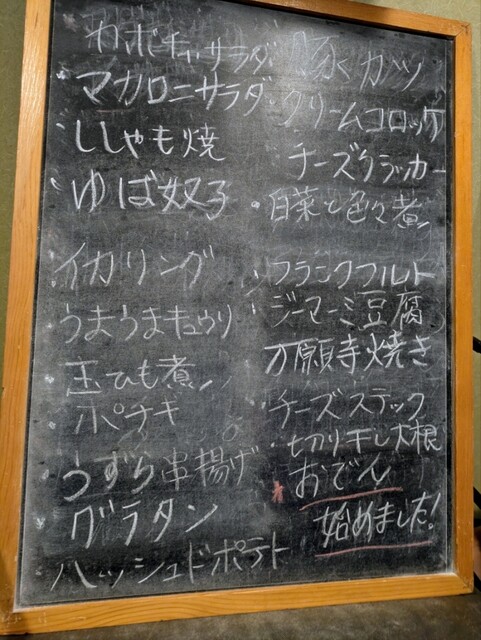 カボチャサラダ
マカロニサラダ
ししゃも焼
ゆば奴子
イカリング
うまうまキュウリ
玉ひも煮
ポチキ
うずら串揚げ
グラタン
ハッシュドポテト
豚くカツ
クリームコロッケ
チーズクラッカー
白菜と色々煮
フランクフルト
ジーマーミ豆腐
万願寺焼き
チーズステック
切り干し大根
おでん
始めました!